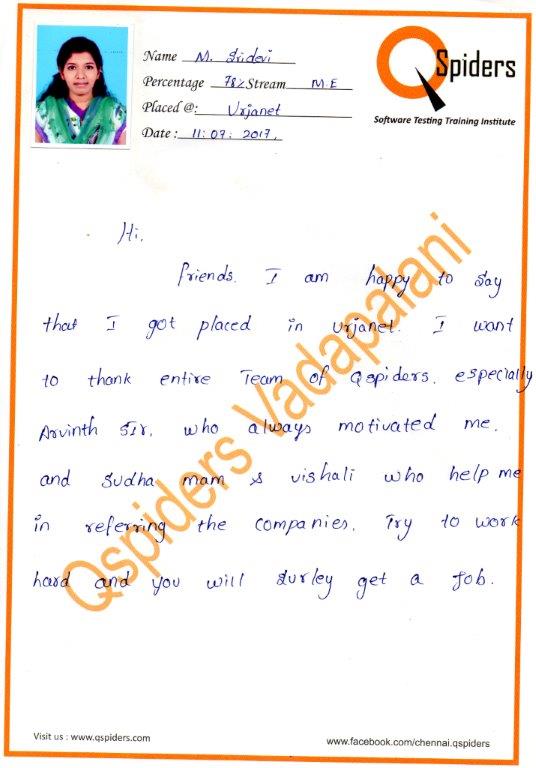 Name M. Sridevi
Percentage 78% Stream M E
Placed @: Urjanet
Date : 11:07:2017.
QSpiders
Software Testing Training Institute
Hi,
friends. I am happy to say
that I got placed in Urjanet. I want
to thank entire Team of Qspiders. especially
Arvinth Sir. who always motivated me.
and Sudha mam & vishali who help me
in referring the companies. Try to work
hard and you will surley get a Job.
Qspiders Vadapalani
Visit us : www.qspiders.com
www.facebook.com/chennai.qspiders